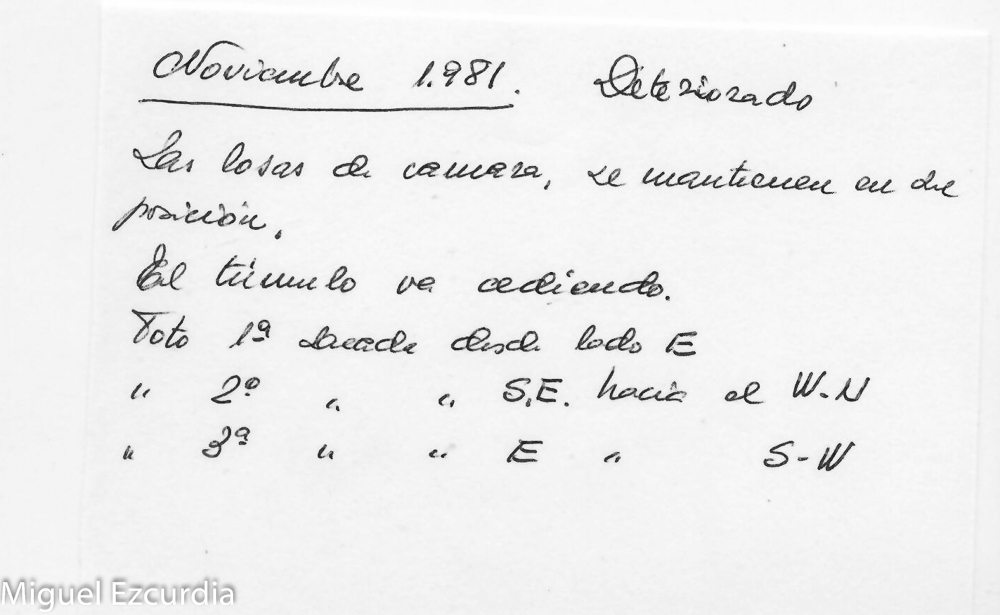 Noviembre 1.981. Deteriorado
Las losas de camara, se mantienen en su
posición.
El túmulo va cediendo.
Foto 1ª sacada desde lado E
" 2ª " " S.E. hacia el W-N
" 3ª " " E " S-W
Miguel Ezcurdia